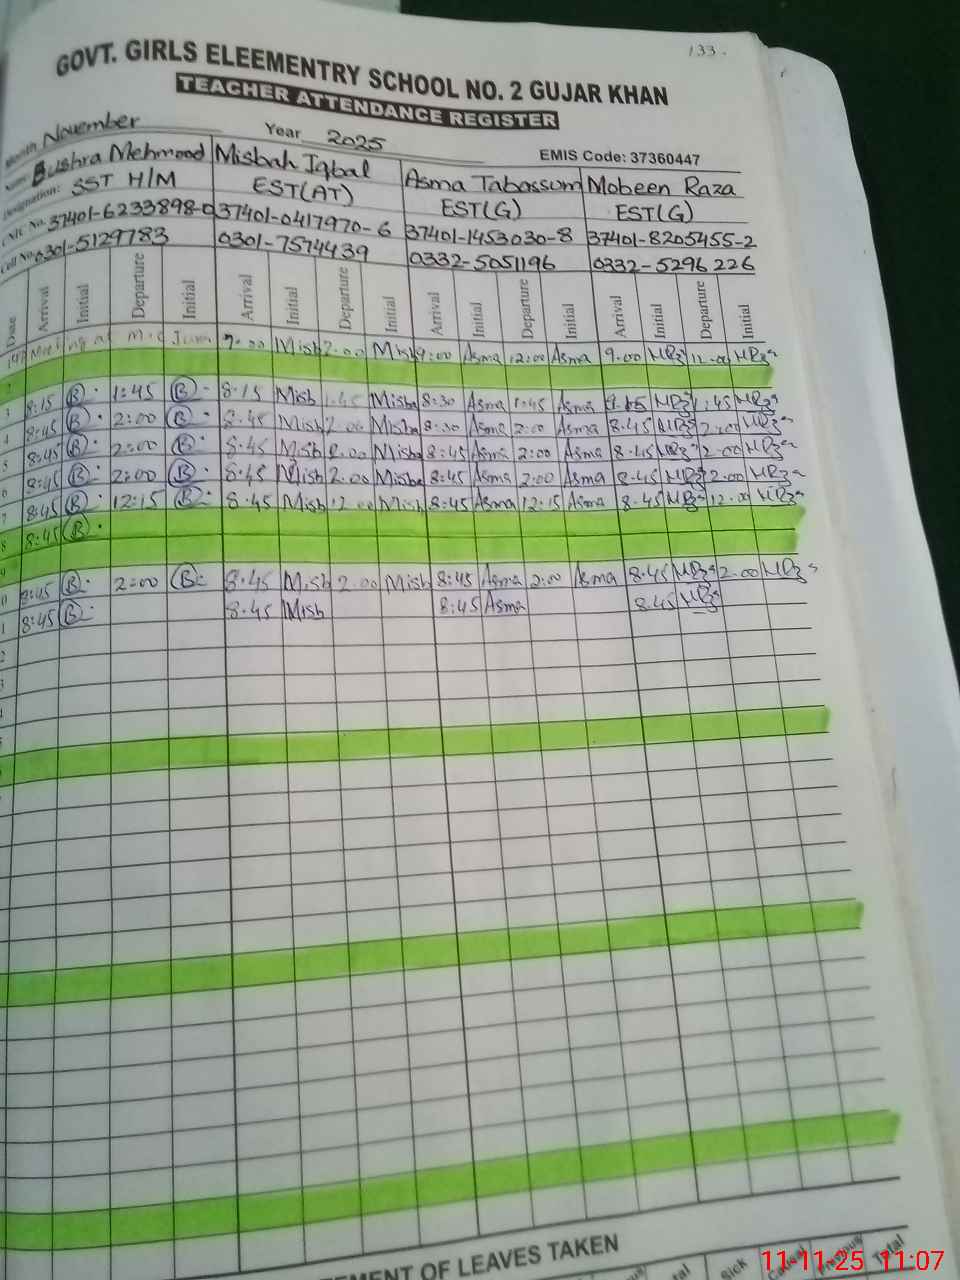 133.
GOVT. GIRLS ELEEMENTRY SCHOOL NO. 2 GUJAR KHAN
TEACHER ATTENDANCE REGISTER
Month November Year 2025 EMIS Code: 37360447
Name: Bushra Mehmood Misbah Iqbal Asma Tabassum Mobeen Raza
Designation: SST H/M EST(AT) EST(G) EST(G)
CNIC No. 37401-6233898-0 37401-0417970-6 37401-1453030-8 37401-8205455-2
Cell No. 0301-5129783 0301-7574439 0332-5051196 0332-5296226
Date Arrival Initial Departure Initial Arrival Initial Departure Initial Arrival Initial Departure Initial Arrival Initial Departure Initial
Meeting at 9:00 Misb 2.00 Misb 9:00 Asma 12:00 Asma 9.00 11.00
3 8:15 B 1:45 B 8.15 Misb 1.45 Misba 8:30 Asma 1:45 Asma 1:45
4 8:45 B 2:00 B 8.45 Misb 2.00 Misba 8:30 Asma 2:00 Asma 8.45 2.00
5 8:45 B 2:00 B 8.45 Misb 2.00 Misba 8:45 Asma 2:00 Asma 8.45 2.00
6 8:45 B 2:00 B 8.45 Misb 2.00 Misba 8:45 Asma 2:00 Asma 8.45 2.00
7 8:45 B 12:15 B 8.45 Misb 12.00 Misb 8:45 Asma 12:15 Asma 8.45 12.00
8 8:45 B
9
8:45 B 2:00 B 8.45 Misb 2.00 Misb 8:45 Asma 2:00 Asma 8.45 2.00
8:45 B 8.45 Misb 8:45 Asma 8.45
OF LEAVES TAKEN
Sick Casual Previous Total
11-11-25 11:07